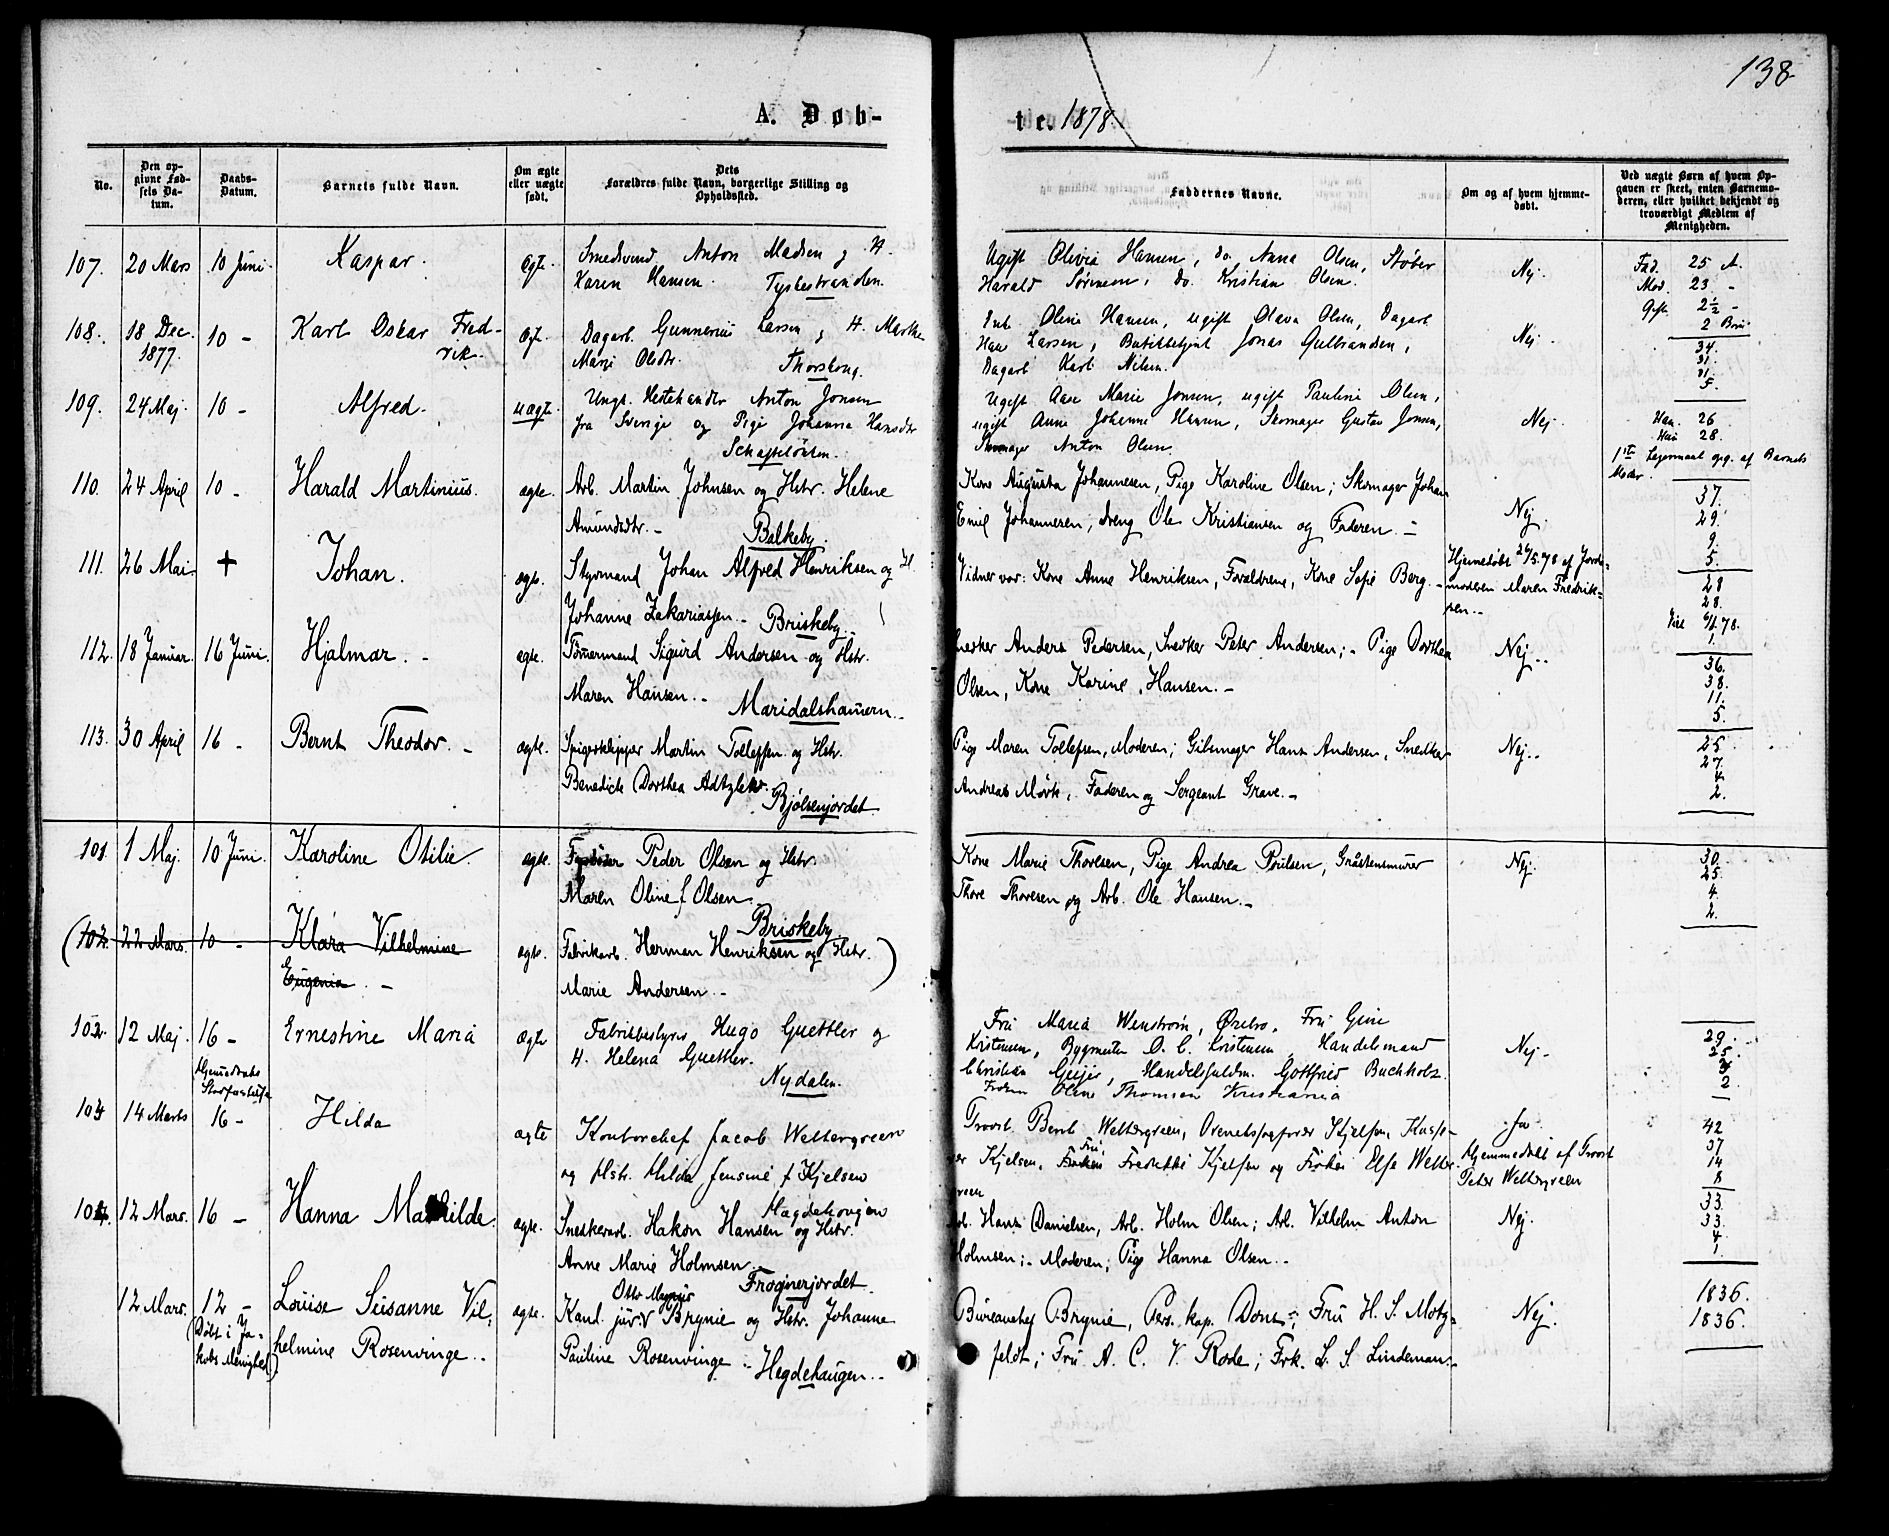 138
A. Døb-
te. 1878.
No.
Den opgivne Fødsels Datum.
Daabs-Datum.
Barnets fulde Navn.
Om ægte eller uægte født.
Dets Forældres fulde Navn, borgerlige Stilling og Opholdssted.
Faddernes Navne.
Om og af hvem hjemmedøbt.
Ved uægte Børn af hvem Opgaven er skeet, enten Barnemoderen, eller hvilket bekjendt og troværdigt Medlem af Menigheden.
107. 20 Mars 10 Juni. Kaspar. ægte. Smedsvend Anton Madsen og H.
Karen Hansen. Tyskestranden.
Ugift Olivia Hansen, do. Anna Olsen, Støber
Harald Sørensen, do. Kristian Olsen.
Nej.
Fad. 25 A.
Mod. 23 -
Gift. 2½ -
2 Brn.
108. 18 Dec. 1877. 10 - Karl Oskar Fredrik. ægt. Dagarb. Gunnerius Larsen, H. Marthe
Marie Olsdtr. Thorshoug.
Enke Oline Hansen, ugift Olava Olsen, Dagarb.
Larsen, Butikbetjent Jonas Gulbrandsen,
Dagarb. Karl Nilsen.
Nej.
34.
31.
5.
109. 24 Maj. 10 - Alfred. uægte. Ungk. Hestehandler Anton Jonsen
fra Sverige og Pige Johanna Hansdtr
Schaftelökken.
Ugift Aase Marie Jonsen, ugift Pauline Olsen,
ugift Anne Johanne Hansen, Skomager Gustav Jonsen,
Skomager Anton Olsen.
Nej.
Han. 26
Hun 28.
1ste Leiermaal opg. af Barnets
Moder.
110. 24 April 10 - Harald Martinius. ægte. Arb. Martin Johnsen og Hstr. Helene
Amundsdtr. - Balkeby.
Kone Augusta Johannesen, Pige Karoline Olsen; Skomager Johan
Emil Johannesen, dreng Ole Kristiansen og Faderen. -
Nej.
37.
29.
9.
5.
111. 26 Mai. + Johan. ægte. Styrmand Johan Alfred Henriksen og H.
Johanne Zakariassen. - Briskeby.
Vidner var: Kone Anne Henriksen, Forældrene, Kone Sofie Berg. -
Hjemmedøbt 26/5 78 af Jorde-
moderen Maren Fredrik-
sen. -
28
28.
1.
112. 18 Januar. 16 Juni. Hjalmar. - ægte. Tømmermand Sigurd Andersen og Hstr.
Maren Hansen. - Maridalshamern. -
Snedker Anders Pedersen, Snedker Peter Andersen; - Pige Dorthea
Olsen, Kone Karine Hansen. -
Nej. -
36.
38.
11.
5.
113. 30 April 16 - Bernt Theodor. - ægte. Spigerklipper Martin Tollefsen og Hstr.
Benedicte Dorthea
Bjølsenjordet
Pige Maren Tollefsen, Moderen; Gibsmager Hans Andersen, Snedker
Andreas Mörk, Faderen og Sergeant Grave. -
Nej. -
25.
27.
4.
2.
101. 1 Maj. 10 Juni. Karoline Otilie. ægte. Peder Olsen og Hstr.
Maren Oline f Olsen.
Briskeby.
Kone Marie Thoresen, Pige Andrea Poulsen, Gråstensmurer
Thore Thoresen og Arb. Ole Hansen. -
Nej.
30.
25.
4.
2.
(102. 22 Mars. 10 - Klara Vilhelmine
Eugenia. - ægte. Fabrikarb. Herman Henriksen og Hstr. )
Marie Andersen. -
102. 12 Maj. 16 - Ernestine Maria ægte Fabrikbestyrer Hugo Guettler og
H. Helena Guettler.
Nydalen.
Fru Maria Wenström, Örebro, Fru Gine
Kristensen, Bygmester O. C. Kristensen, Handelsmand
Christian Geijer, Handelsfuldm. Gottfried Buchholz.
Frøken Oline Thomsen Kristiania
Nej -
29.
25.
2.
103 14 Marts 16 - Hilda ægte Kontorchef Jacob Wettergreen
og Hstr. Hilda Jensine f Kjelsen
Magdehougen
Provst Bernt Wettergreen, Kjelsen, Kasse-
rer Kjelsen, Fru Fredrikke Kjelsen og Frøken Else Wetter-
green
Ja
Hjemmedøbt af Provst
Peter Wettergreen
42
37
14
8
104. 12 Mars. 16 - Hanna Mathilde. ægte. Snedkerarb. Hakon Hansen og Hstr.
Anne Marie Holmsen.
Frognerjordet.
Arb. Hans Danielsen, Arb. Holm Olsen; Arb. Vilhelm Anton
Holmsen; - Moderen; Pige Hanna Olsen. -
Nej.
33.
33.
4.
1.
12 Mars. 12 -
(Døbt i Ja-
kobs Menighed)
Louise Susanne Vil-
helmine Rosenvinge. -
ægte. Kand. jur: Otto Magnus Brynie og Hstr. Johanne
Pauline Rosenvinge - Hegdehaugen. -
Büreauchef Brynie, Pers. kap. Dons; Fru H. S. Motz-
feldt; Fru A. C. V. Rode; Frk. L. S. Lindeman. -
Nej.
1836.
1836.